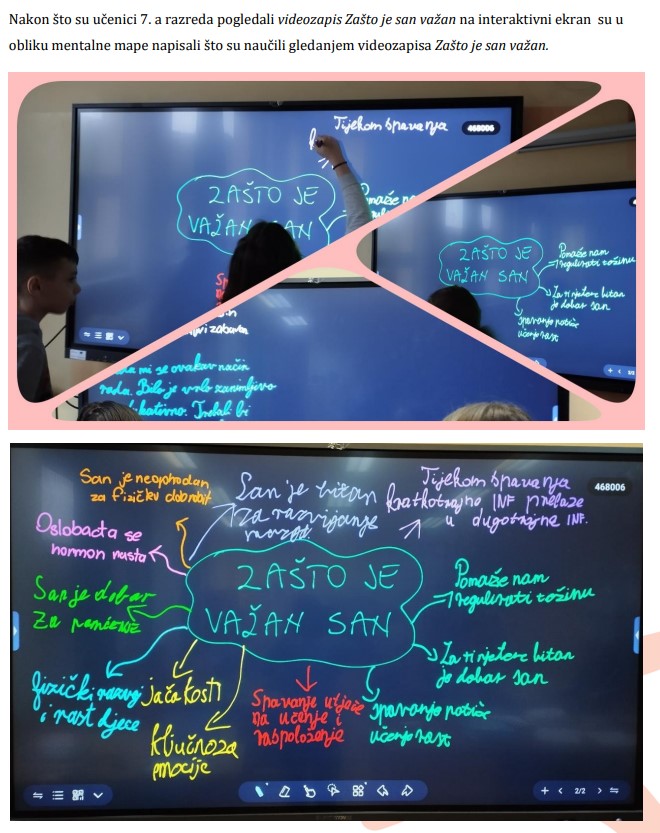 Nakon što su učenici 7. a razreda pogledali videozapis Zašto je san važan na interaktivni ekran su u
obliku mentalne mape napisali što su naučili gledanjem videozapisa Zašto je san važan.
Tijekom spavanja
468006
ZAŠTO JE
VAŽAN SAN
ZAŠTO JE
VAŽAN SAN
Pomaže nam
regulirati težinu
Za tinjdere bitan
je dobar san
spavanje potiče
učenje
zabavan
mi se ovakav način
rada. Bilo je vrlo zanimljivo
Trebali bi
San je neophodan
za fizičku dobrobit
San je bitan
za razvijanje
Tijekom spavanja
kratkotrajne INF prelaze
u dugotrajne INF.
468006
Oslobađa se
hormon rasta
ZAŠTO JE
VAŽAN SAN
Pomaže nam
regulirati težinu
San je dobar
za
Za tinjdere bitan
je dobar san
fizički razvoj
i rast djece
jača kosti
ključno za
emocije
Spavanje utječe
na učenje i
raspoloženje
spavanje potiče
učenje
2/2